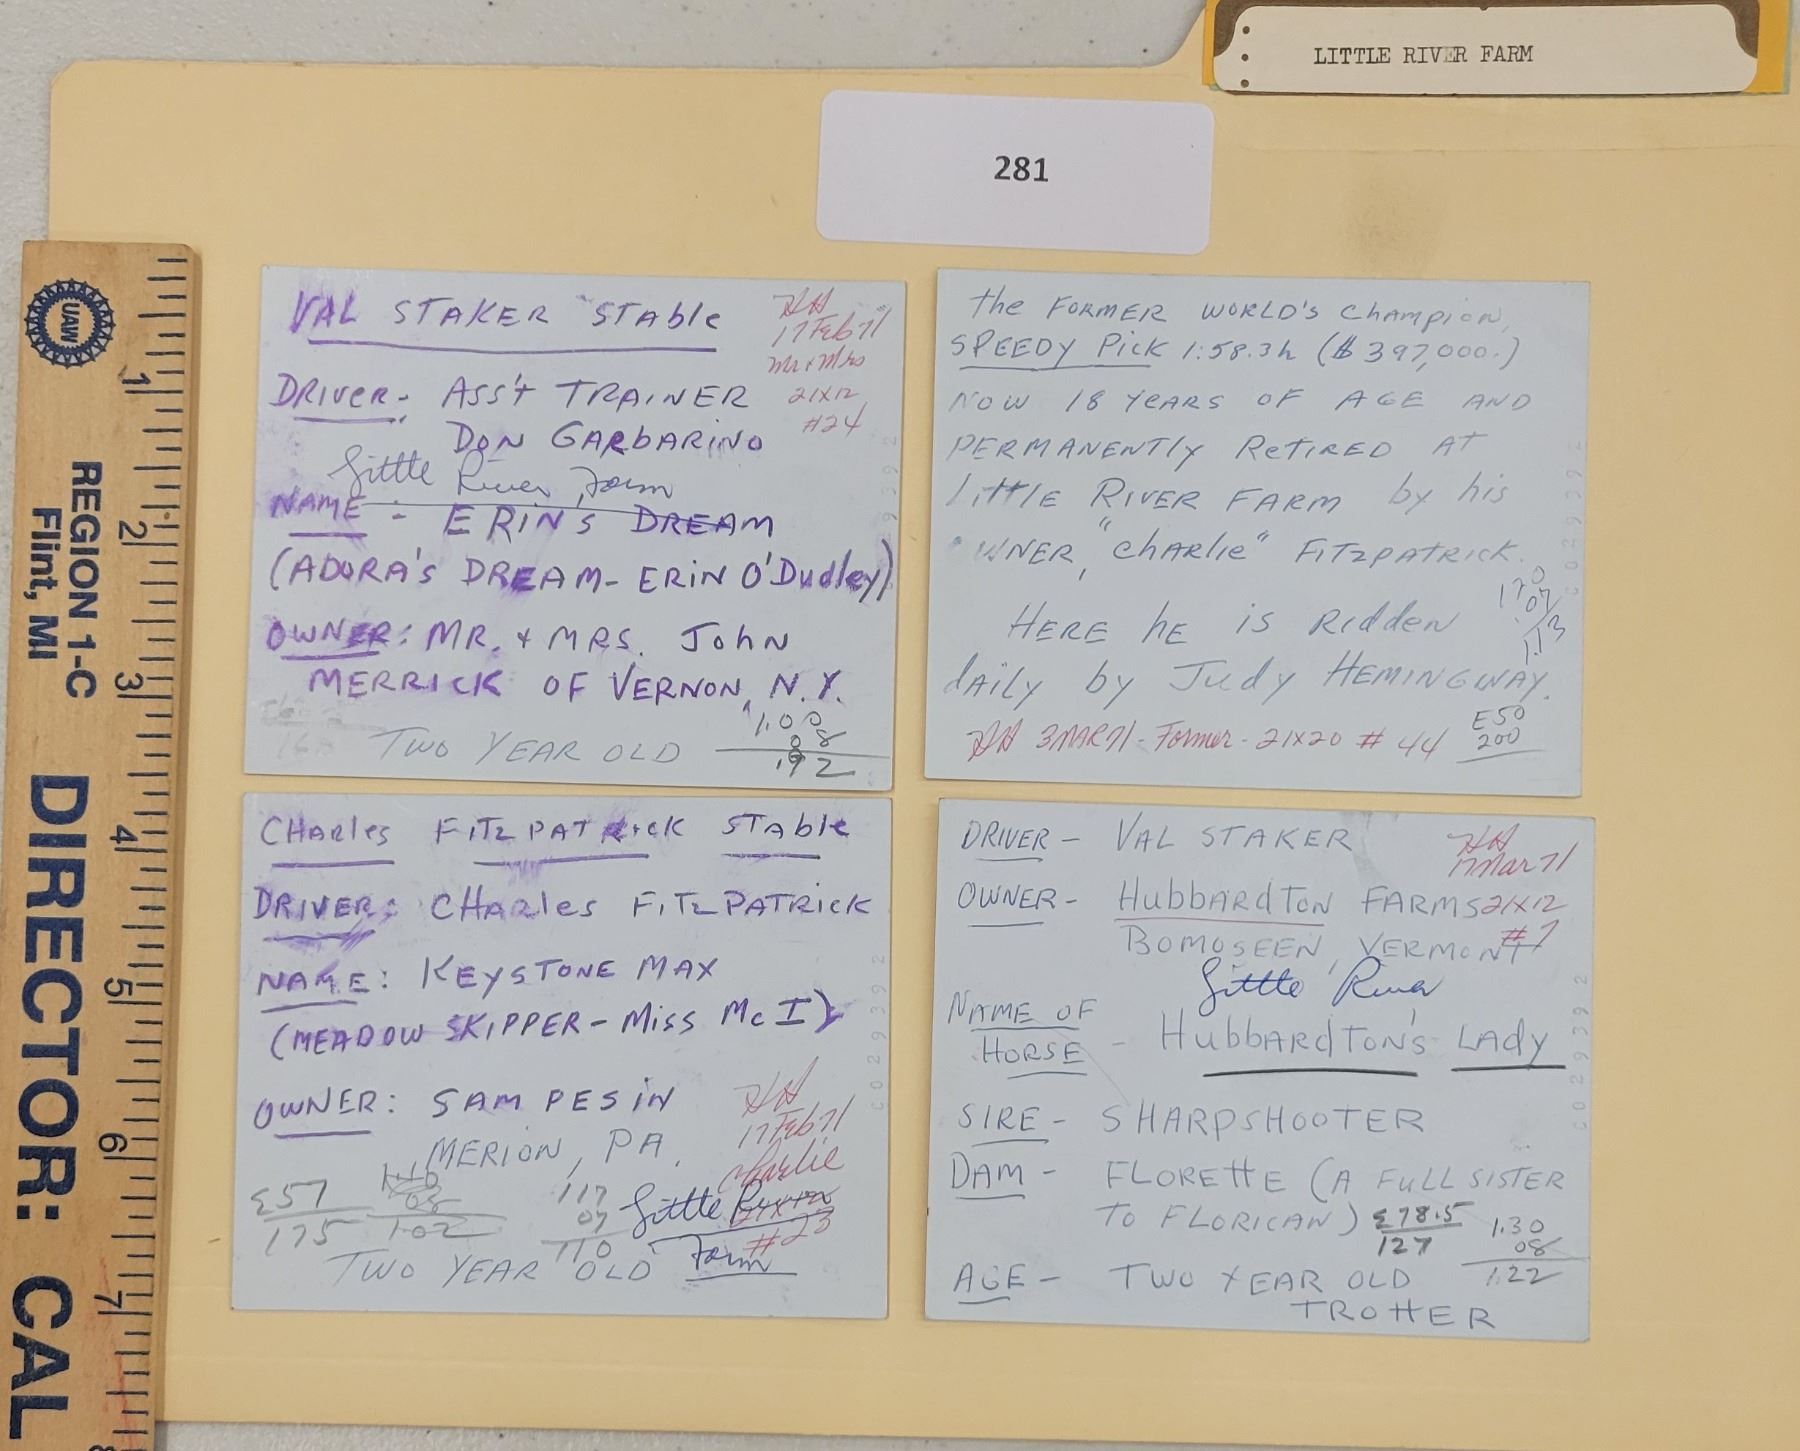 LITTLE RIVER FARM
281
VAL STAKER STAble
HH
17 Feb 71
Mr + Mrs
21X12
#24
DRIVER- ASS't TRAINER
DON GARBARINO
Little River Farm
NAME - ERIN'S DREAM
(ADORA'S DREAM- ERIN O'Dudley)
OWNER: MR. + MRS. JohN
MERRICK OF VERNON, N.Y.
TWO YEAR OLD
1.00
08
.92
C029392
the FORMER WORLD'S ChAmpioN,
SPEEDY Pick 1:58.3h ($397,000.)
NOW 18 YEARS OF AGE AND
PERMANENTLY RETIRED AT
LittlE RIVER FARM by his
WNER, "ChARlie" FITZPATRICK.
1.20
.07
1.13
HERE hE is RiddEN
dAily by Judy HEMINGWAY.
HH 3MAR71- Former- 21X20 #44
E50
200
C029392
CHArles FITZPATRICK STAble
DRIVER: CHArles FITZPATRICK
NAME: KEYSTONE MAX
(MEADOW SKIPPER- Miss Mc I)
OWNER: SAM PESIN
MERION, PA.
HH
17 Feb 71
Charlie
#23
£57
175
08
1.02
117
07
110
Little River
Farm
TWO YEAR OLD
C029392
DRIVER- VAL STAKER
HH
17 Mar 71
21X12
#7
OWNER- HubbARdTON FARMS
BOMOSEEN, VERMONT
Little River
NAME OF
HORSE - HubbARdTON'S LAdy
SIRE- SHARPSHOOTER
DAM- FLORETTE (A FULL SISTER
TO FLORICAN)
£78.5
127
1.30
08
1.22
AGE- TWO YEAR OLD
TROTTER
C029392
UAW
REGION 1-C
Flint, MI
DIRECTOR: CAL
1
2
3
4
5
6
7
8